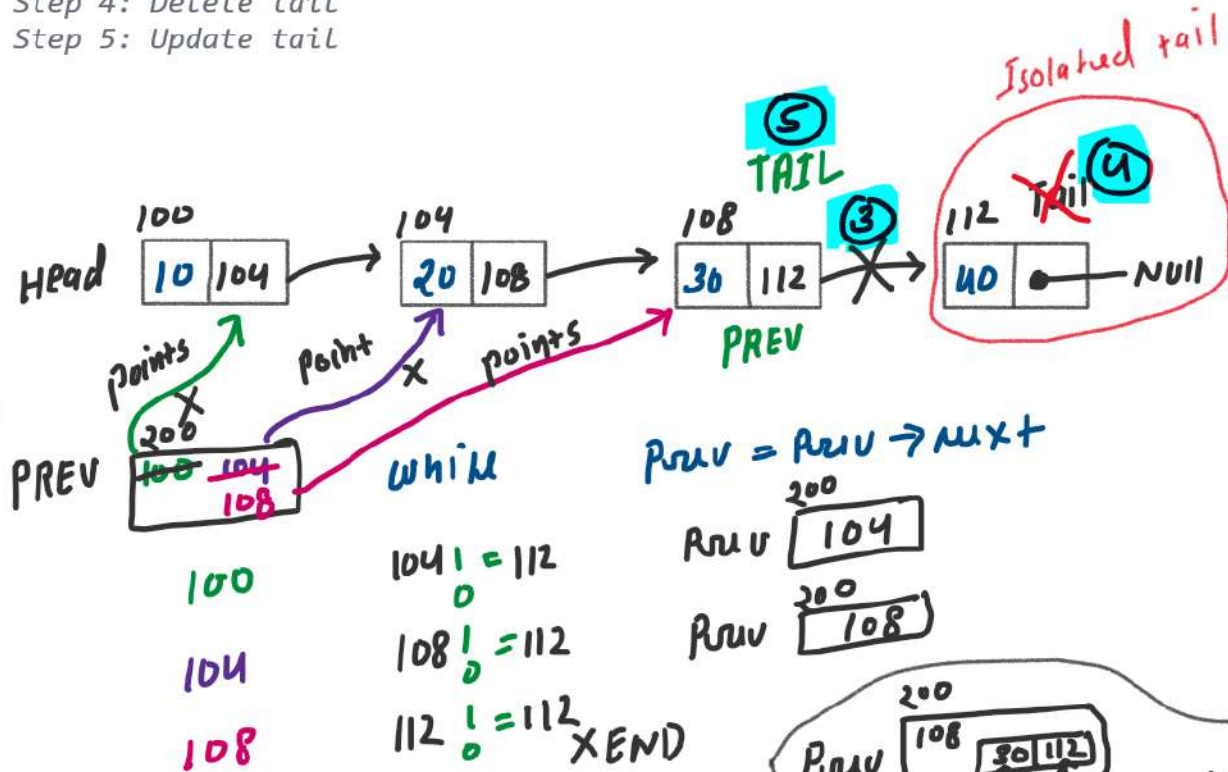 Step 4: Delete tail
Step 5: Update tail
Isolated tail
5
TAIL
3
Tail 4
100
104
108
112
Head 10 104
20 108
30 112
40 NUll
PREV
points
point
points
X
X
200
PREV 100 104
108
while
Prev = Prev → next
200
Prev 104
200
Prev 108
100
104
108
104 != 112
0
108 != 112
0
112 != 112 X END
0
200
Prev 108 30 112